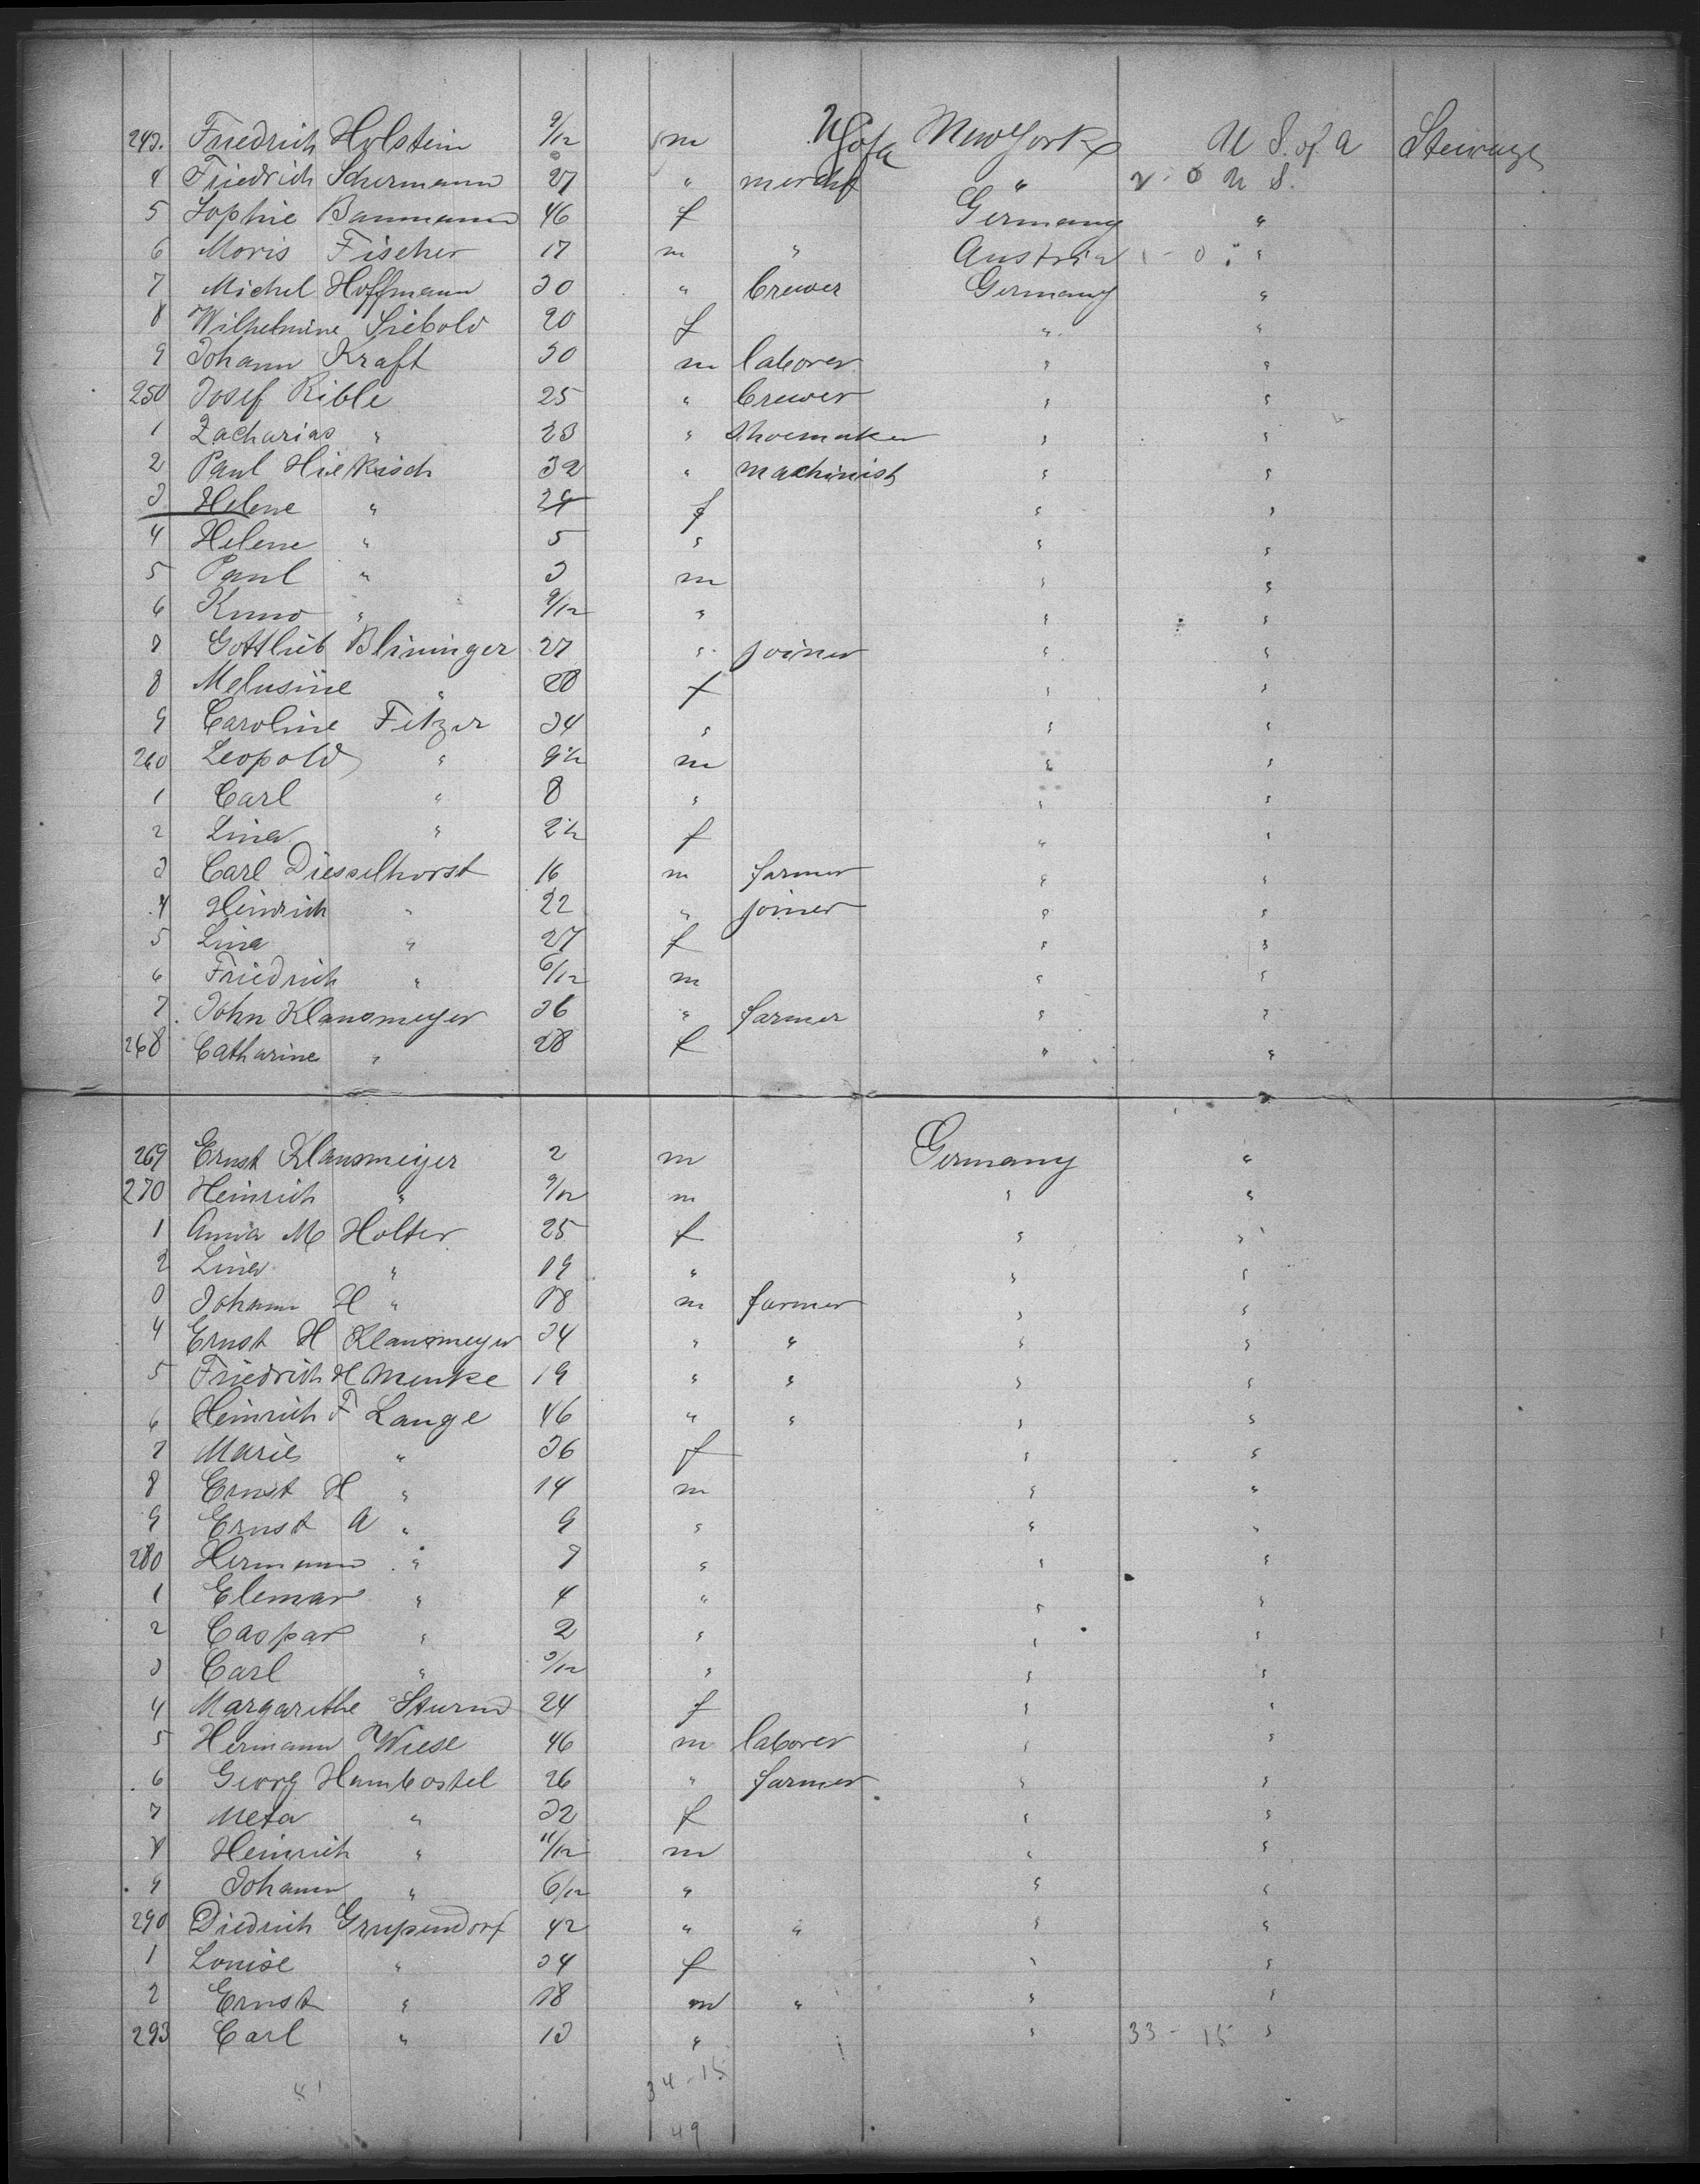 243. Friedrich Holstein 9/12 m U S of a New York U S. of A Steerage
4 Friedrich Schermann 27 " mercht " 2 - 0 U S.
5 Sophie Baumann 46 f Germany "
6 Moris Fischer 17 m " Austria 1 - 0 "
7 Michel Hoffmann 30 " brewer Germany "
8 Wilhelmine Siebold 20 f " "
9 Johann Kraft 30 m laborer " "
250 Josef Rible 25 " brewer " "
1 Zacharias " 23 " Shoemaker " "
2 Paul Hiekisch 32 " machinist " "
3 Helene " 24 f " "
4 Helene " 5 " " "
5 Paul " 3 m " "
6 Kuno " 9/12 " " "
7 Gottlieb Blininger 27 " joiner " "
8 Melusine " 28 f " "
9 Caroline Fitzer 34 " " "
260 Leopold " 9 1/2 m " "
1 Carl " 8 " " "
2 Lina " 2 1/2 f " "
3 Carl Diesselhorst 16 m farmer " "
4 Heinrich " 22 " joiner " "
5 Lina " 27 f " "
6 Friedrich " 6/12 m " "
7 John Klausmeyer 36 " farmer " "
268 Catharine " 28 f " "
269 Ernst Klausmeyer 2 m Germany "
270 Heinrich " 9/12 m " "
1 Anna M Holter 25 f " "
2 Lina " 19 " " "
3 Johann H " 18 m farmer " "
4 Ernst H Klausmeyer 34 " " " "
5 Friedrich H Menke 19 " " " "
6 Heinrich F Lange 46 " " " "
7 Marie " 36 f " "
8 Ernst H " 14 m " "
9 Ernst A " 9 " " "
280 Hermann " 7 " " "
1 Elemar " 4 " " "
2 Caspar " 2 " " "
3 Carl " 3/12 " " "
4 Margarethe Sturm 24 f " "
5 Hermann Wiese 46 m laborer " "
6 Georg Hambostel 26 " farmer " "
7 Meta " 32 f " "
8 Heinrich " 11/12 m " "
9 Johann " 6/12 " " "
290 Diedrich Grupendorf 42 " " " "
1 Louise " 34 f " "
2 Ernst " 18 m " " "
293 Carl " 13 " " 33 - 15 "
34 - 15
49